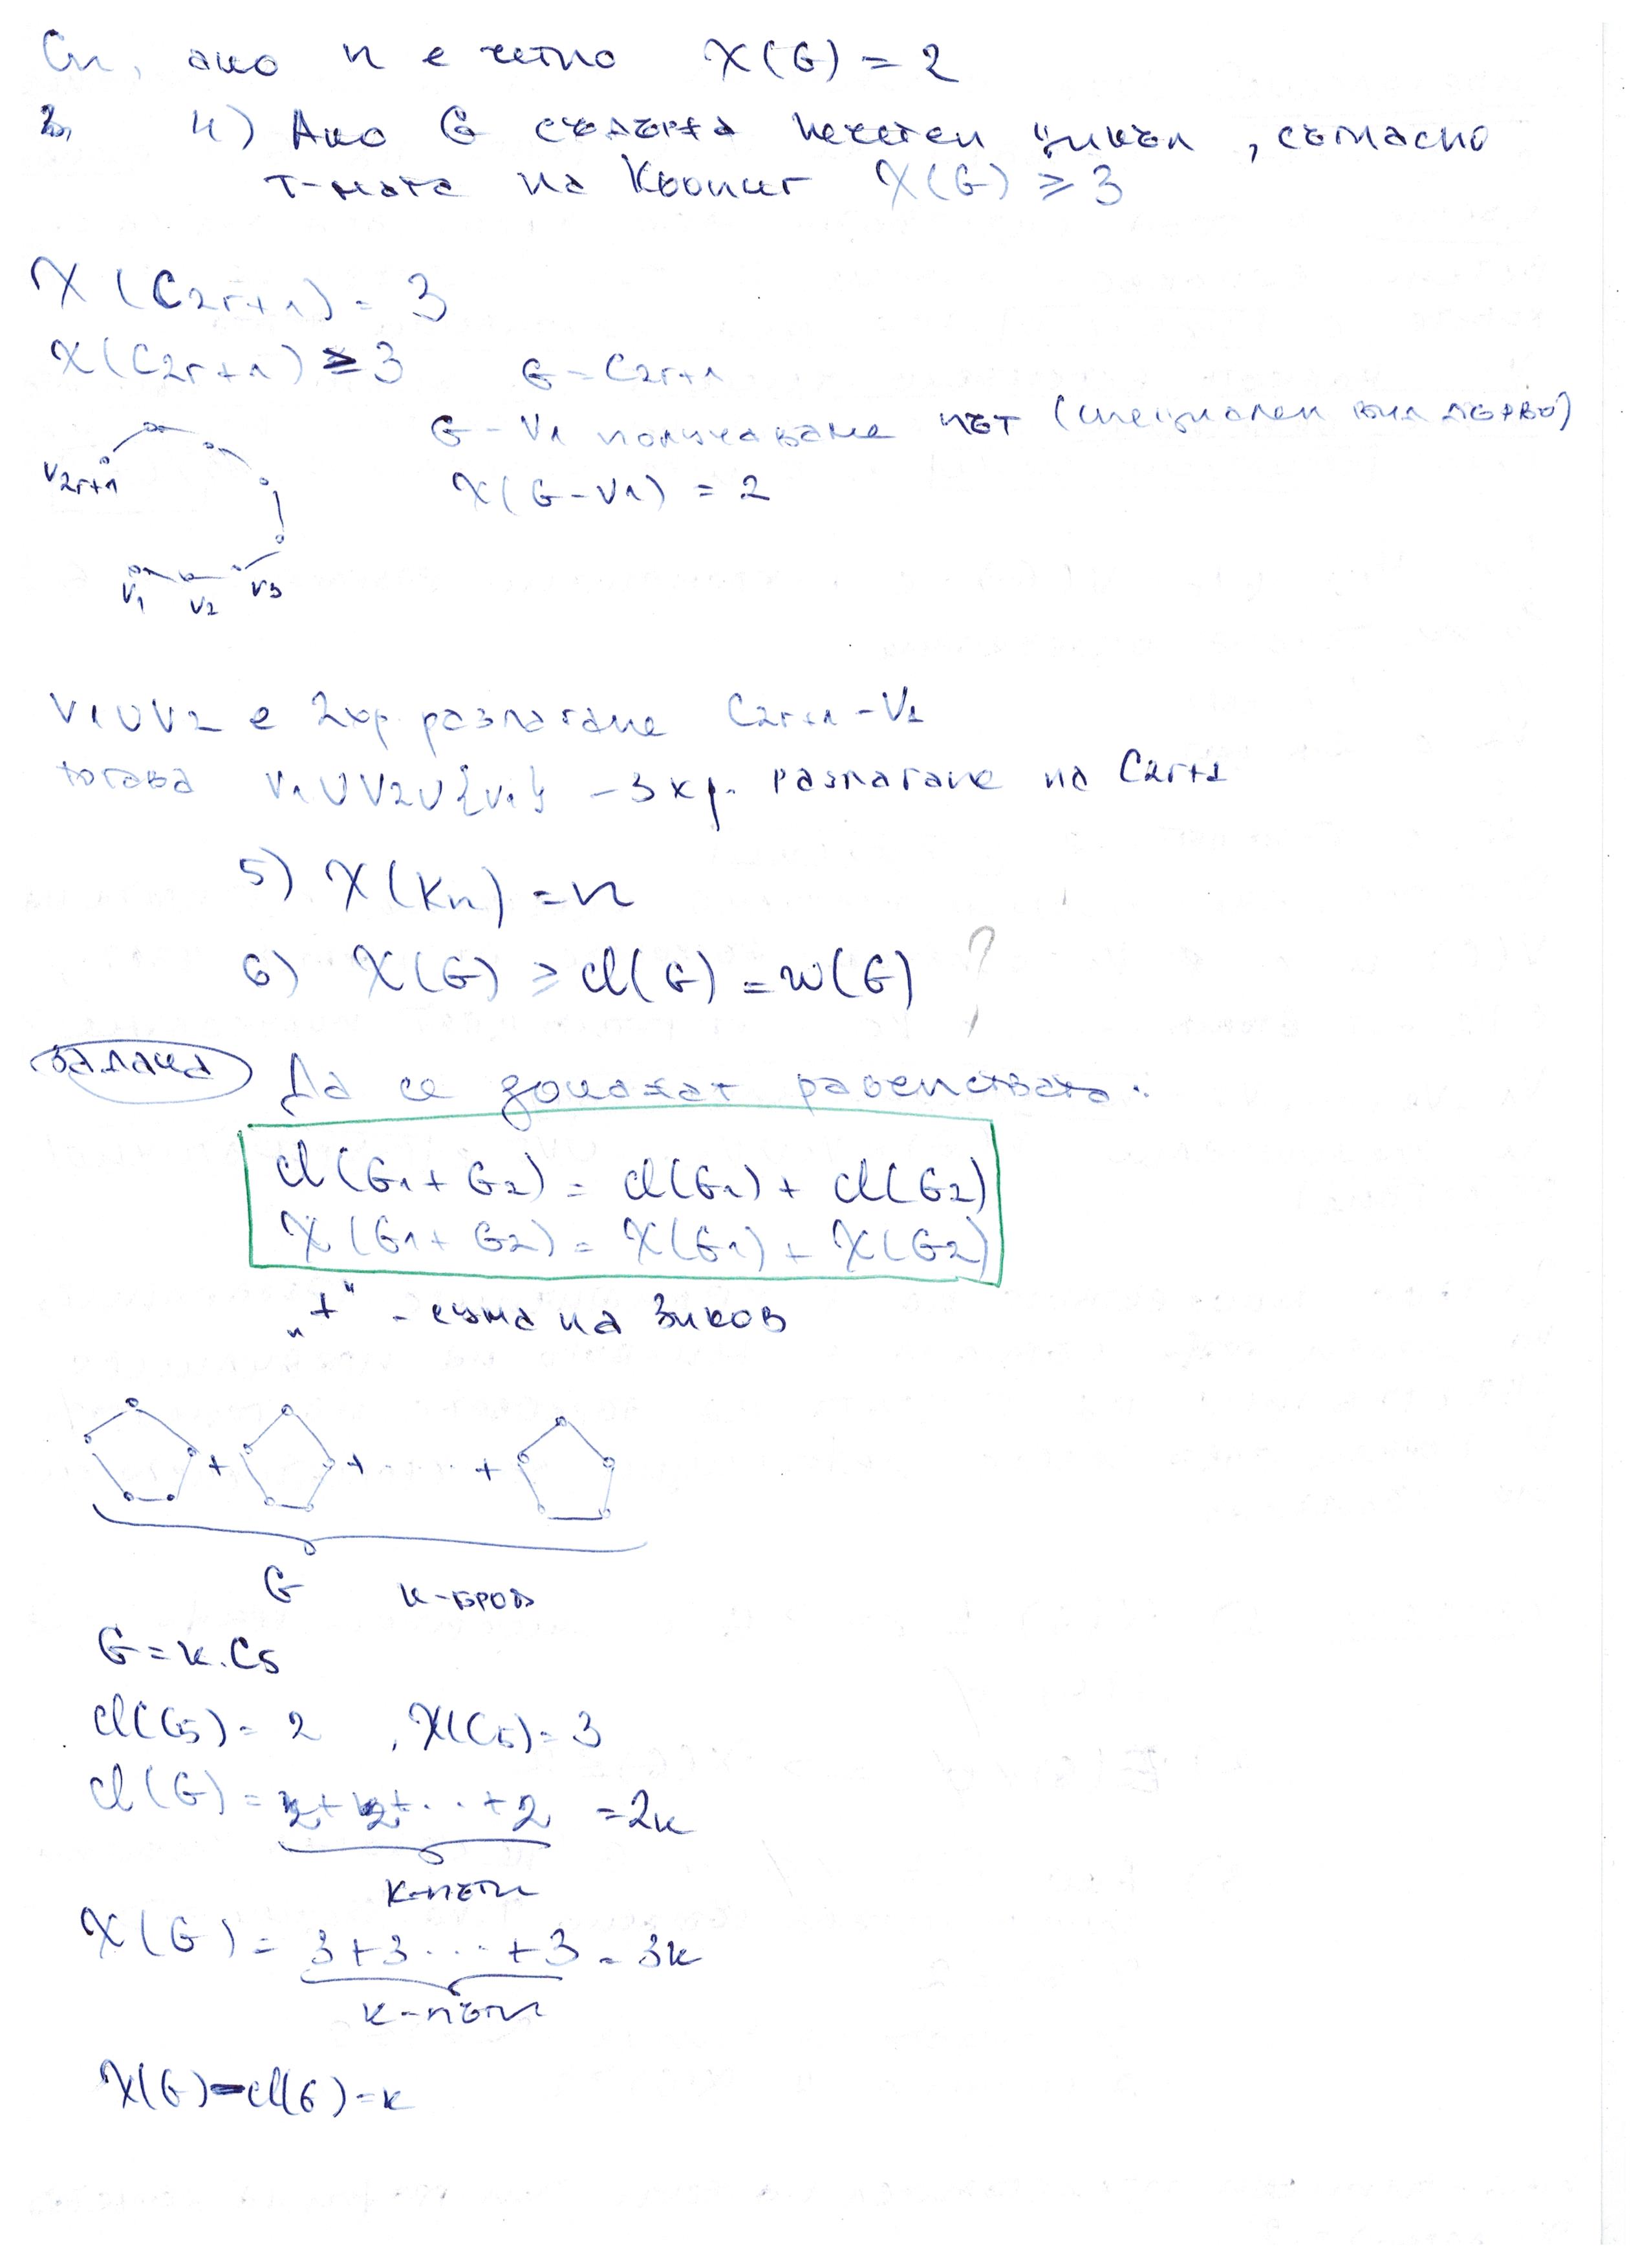 Cn, ако n е четно χ(G) = 2
3, 4) Ако G съдържа нечетен цикъл, съгласно
т-мата на Кьониг χ(G) ≥ 3
χ(C2r+1) = 3
χ(C2r+1) ≥ 3
G = C2r+1
G - V1 получаваме път (специален вид дърво)
χ(G - V1) = 2
V2r+1
V1 V2 V3
V1 ∪ V2 е 2хр. разлагане C2r+1 - V1
тогава V1 ∪ V2 ∪ {V1} - 3 хр. разлагане на C2r+1
5) χ(Kn) = n
6) χ(G) ≥ cl(G) = ω(G) ?
ЗАДАЧА Да се докажат равенствата:
cl(G1 + G2) = cl(G1) + cl(G2)
χ(G1 + G2) = χ(G1) + χ(G2)
„+" - сума на Зиков
+ + ..... +
G к-броя
G = к.C5
cl(C5) = 2 , χ(C5) = 3
cl(G) = 2 + 2 + ... + 2 = 2к
к-пъти
χ(G) = 3 + 3 ... + 3 = 3к
к-пъти
χ(G) - cl(G) = к